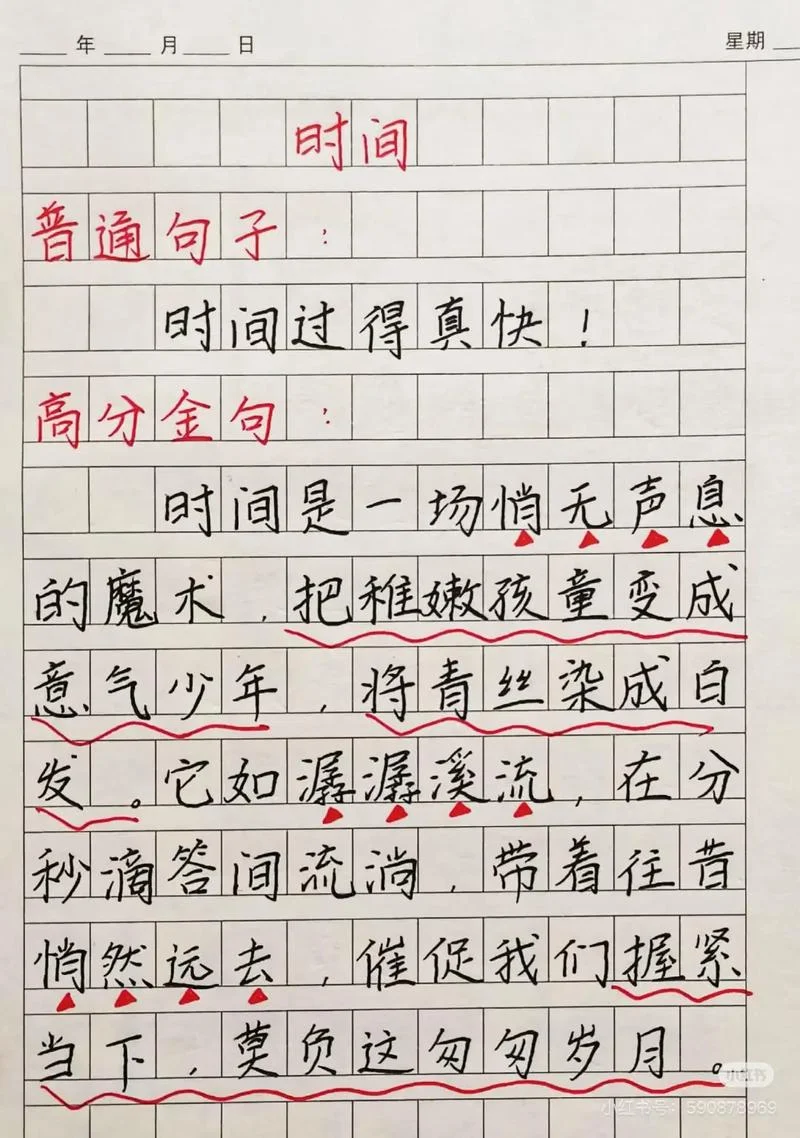 ____年____月____日 星期__
时间
普通句子：
时间过得真快！
高分金句：
时间是一场悄无声息
的魔术，把稚嫩孩童变成
意气少年，将青丝染成白
发。它如潺潺溪流，在分
秒滴答间流淌，带着往昔
悄然远去，催促我们握紧
当下，莫负这匆匆岁月。
小红书
小红书号：590878969